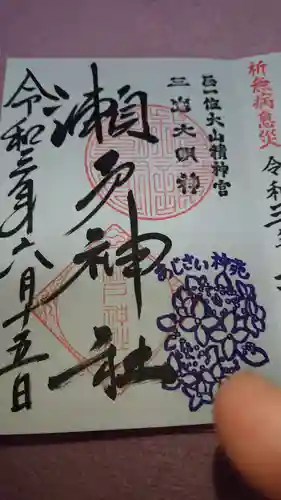 祈無病息災
令和三年
正一位大山積神宮
三嶌大明神
瀬戸神社
あじさい神苑
令和三年六月十五日